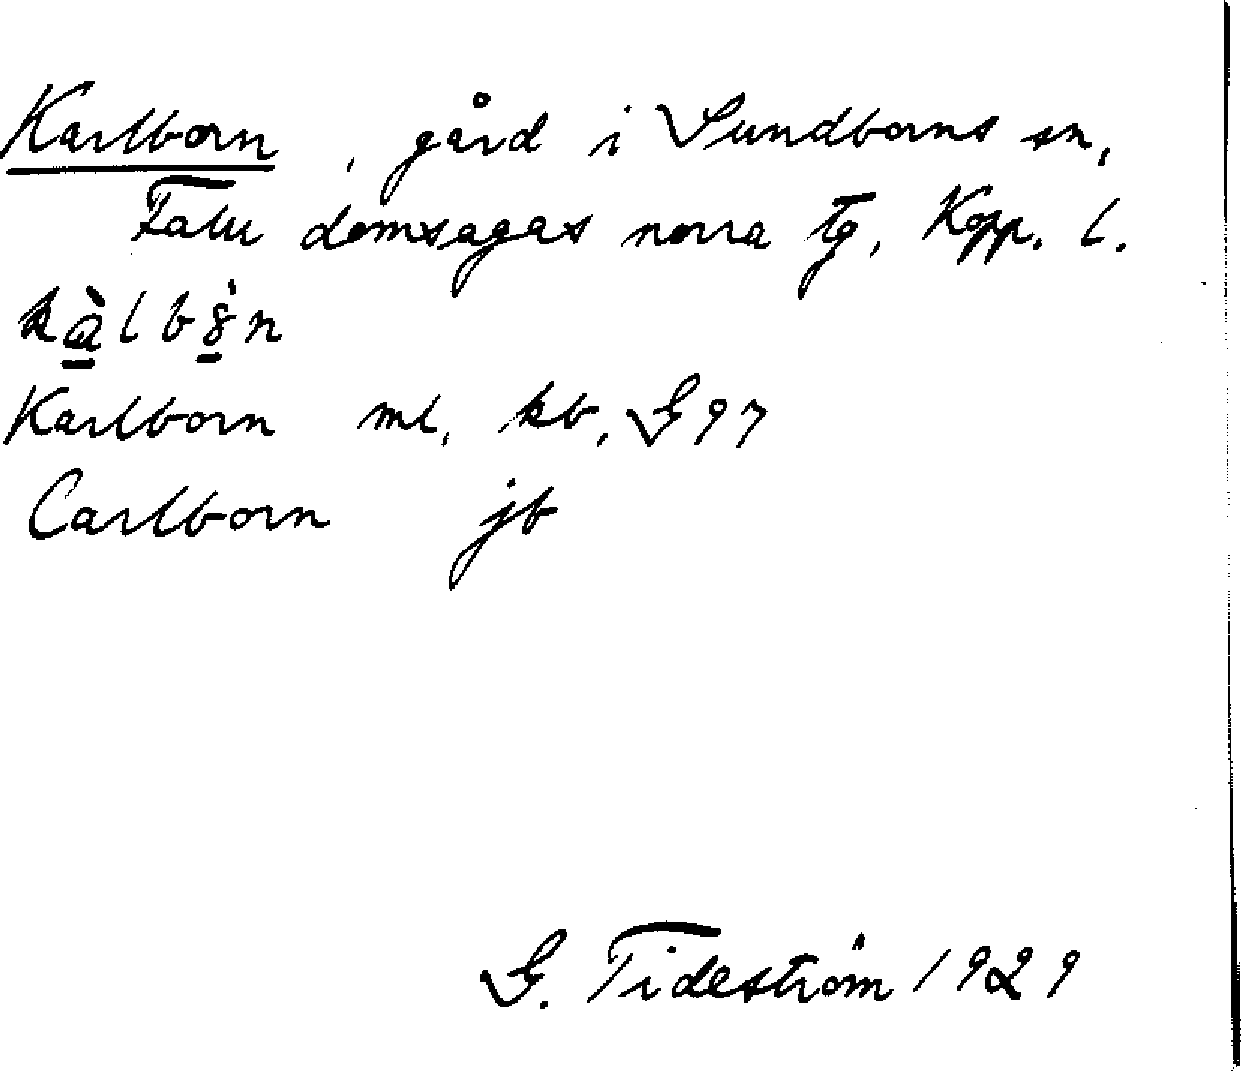 Karlborn, gård i Sundborns sn,
Falu domsagas norra tg, Kopp. l.
Karlborn ml, kb, G 97
Carlborn jb
G. Tideström 1929